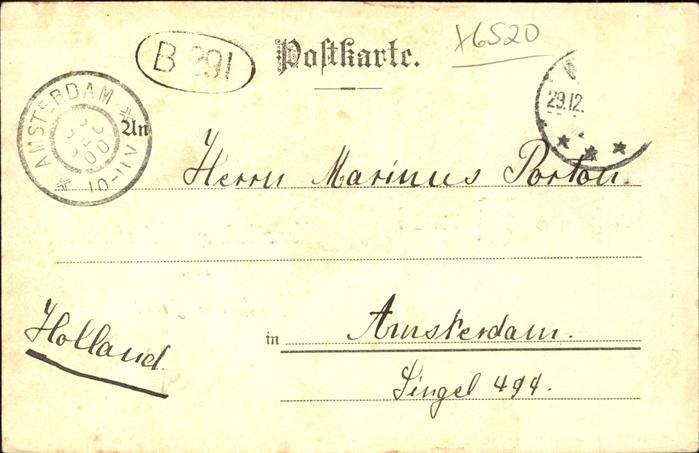 Postkarte.
x6520
B 291
AMSTERDAM
10-11V
29.12.
An
Herrn Marinus Porton.
Holland
in Amsterdam.
Singel 494.